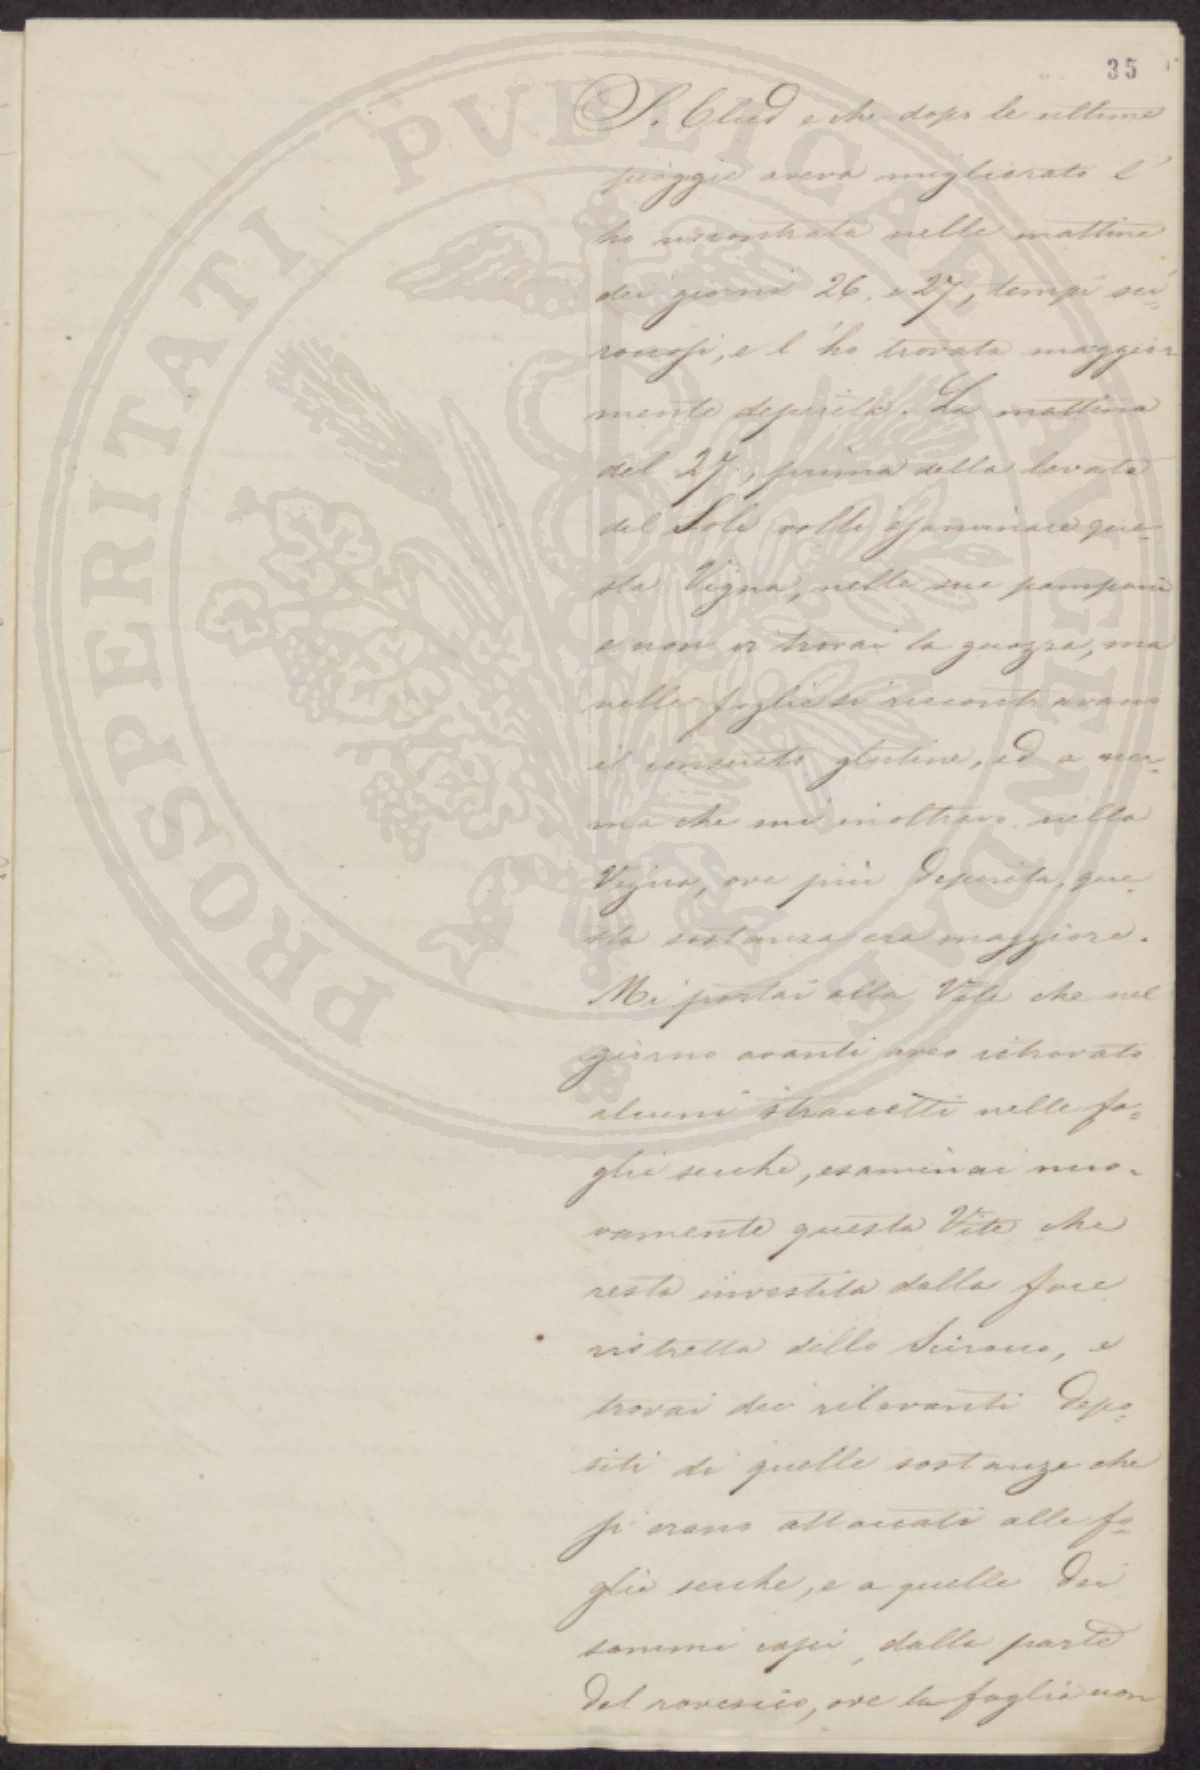 35
S. Clud e che dopo le ultime
pioggie aveva migliorato l'
ho riscontrata nelle mattine
dei giorni 26, e 27, tempi sci=
roccosi, e l'ho trovata maggior
mente deperita. La mattina
del 27, prima della levata
del Sole volli esaminare que=
sta Vigna, nelle sue pampani
e non vi trovai la guazza, ma
nelle foglie si riscontravano
il consueto glutine, ed a mar=
ma che mi inoltravo nella
Vigna, ove più deperita, que=
sta sostanza era maggiore.
Mi portai alla Vite che nel
giorno avanti aveo ritrovato
alcuni straccetti nelle fo=
glie secche, esaminai nuo=
vamente questa Vite che
resta investita dalla foce
ristretta dello Scirocco, e
trovai dei rilevanti depo=
siti di quelle sostanze che
si erano attaccati alle fo=
glie secche, e a quelle dei
sommi capi, dalla parte
del rovescio, ove la foglia non
PROSPERITATI PVBLICAE AVGENDAE